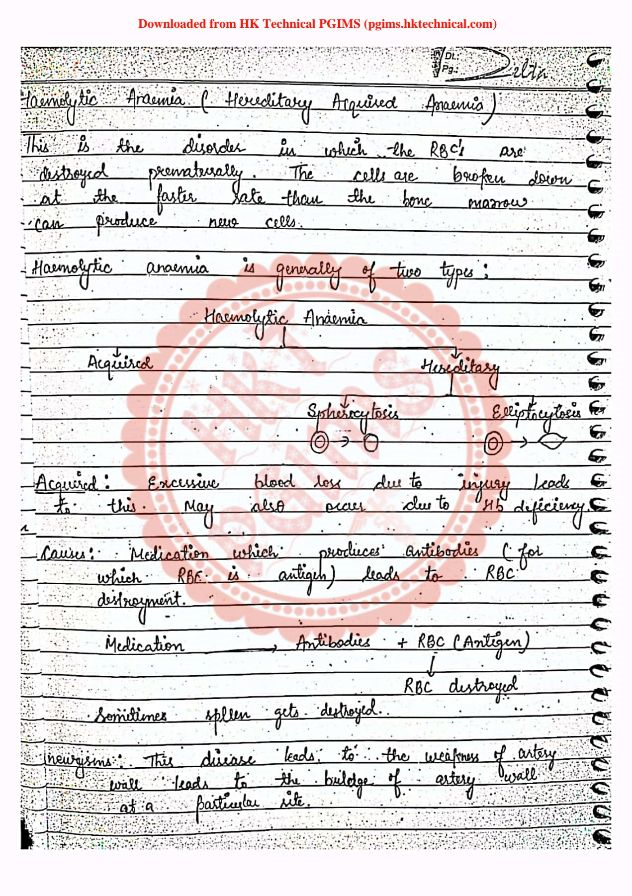 Downloaded from HK Technical PGIMS (pgims.hktechnical.com)
Dt.
Pg.
Delta
Haemolytic Anaemia ( Hereditary Acquired Anaemia )
This is the disorder in which the RBC's are
destroyed prematurally. The cells are broken down
at the faster rate than the bone marrow
can produce new cells.
Haemolytic anaemia is generally of two types :
Haemolytic Anaemia
Acquired Hereditary
Spherocytosis Elliptocytosis
Acquired : Excessive blood loss due to injury leads
to this. May also occur due to Hb deficiency
Causes : Medication which produces antibodies ( for
which RBC is antigen) leads to RBC
destroyment.
Medication → Antibodies + RBC (Antigen)
↓
RBC destroyed
Sometimes spleen gets destroyed.
neurysms : This disease leads to the weakness of artery
wall leads to the buldge of artery wall
at a particular site.
HKT
PGIMS